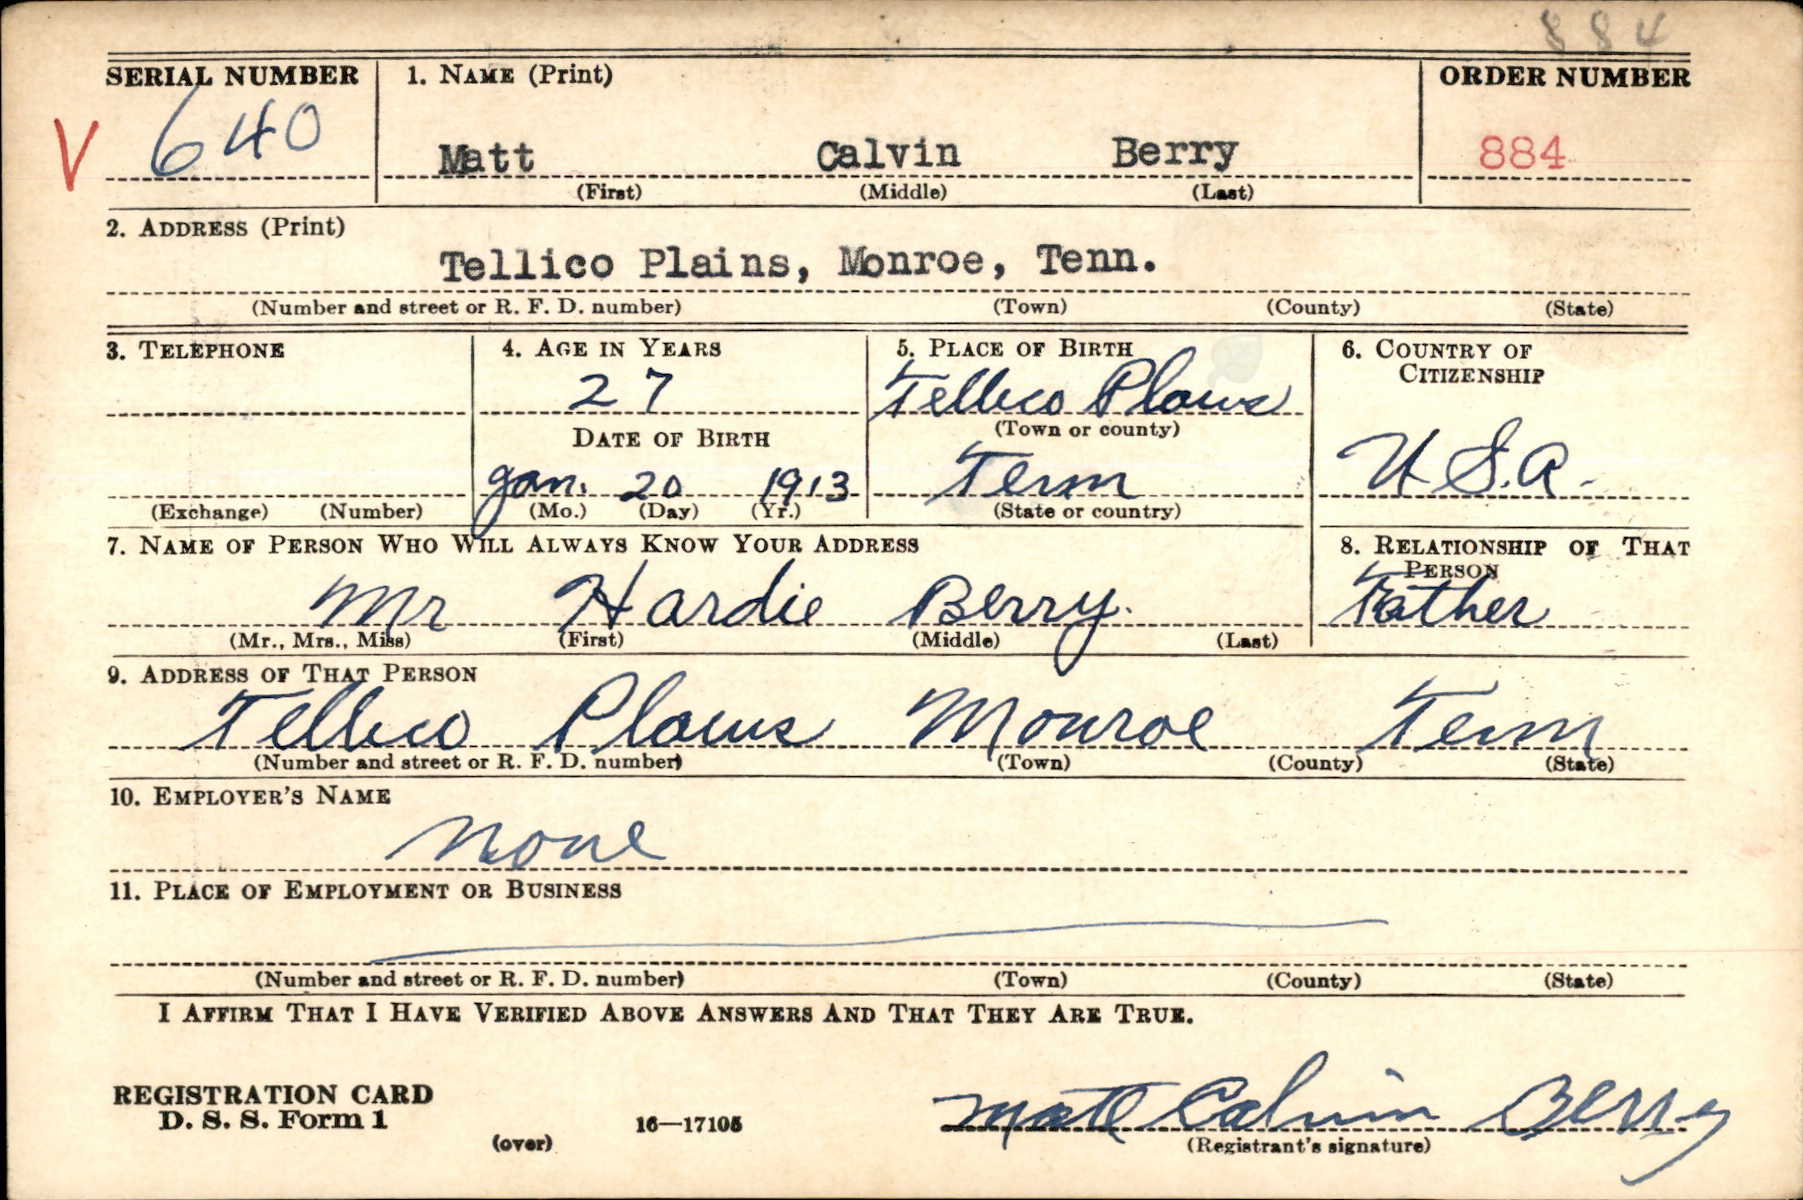 884
SERIAL NUMBER 1. NAME (Print) ORDER NUMBER
V 640 Matt Calvin Berry 884
(First) (Middle) (Last)
2. ADDRESS (Print)
Tellico Plains, Monroe, Tenn.
(Number and street or R. F. D. number) (Town) (County) (State)
3. TELEPHONE 4. AGE IN YEARS 5. PLACE OF BIRTH 6. COUNTRY OF
CITIZENSHIP
27 Tellico Plains
DATE OF BIRTH (Town or county)
Jan. 20 1913 Tenn U.S.A.
(Exchange) (Number) (Mo.) (Day) (Yr.) (State or country)
7. NAME OF PERSON WHO WILL ALWAYS KNOW YOUR ADDRESS 8. RELATIONSHIP OF THAT
PERSON
Mr Hardie Berry. Father
(Mr., Mrs., Miss) (First) (Middle) (Last)
9. ADDRESS OF THAT PERSON
Tellico Plains Monroe Tenn
(Number and street or R. F. D. number) (Town) (County) (State)
10. EMPLOYER'S NAME
None
11. PLACE OF EMPLOYMENT OR BUSINESS
(Number and street or R. F. D. number) (Town) (County) (State)
I AFFIRM THAT I HAVE VERIFIED ABOVE ANSWERS AND THAT THEY ARE TRUE.
REGISTRATION CARD
D. S. S. Form 1 16—17105 Matt Calvin Berry
(over) (Registrant's signature)